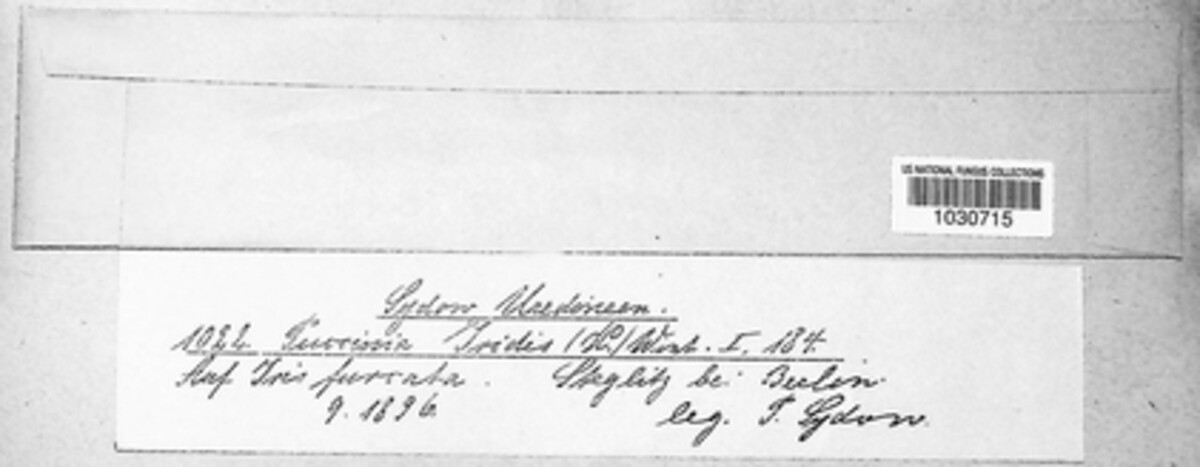 US NATIONAL FUNGUS COLLECTIONS
1030715
Sydow Uredineen.
1022 Puccinia Iridis (DC.) Wint. I, 184.
Auf Iris furcata. Steglitz bei Berlin
9. 1896.
leg. P. Sydow.